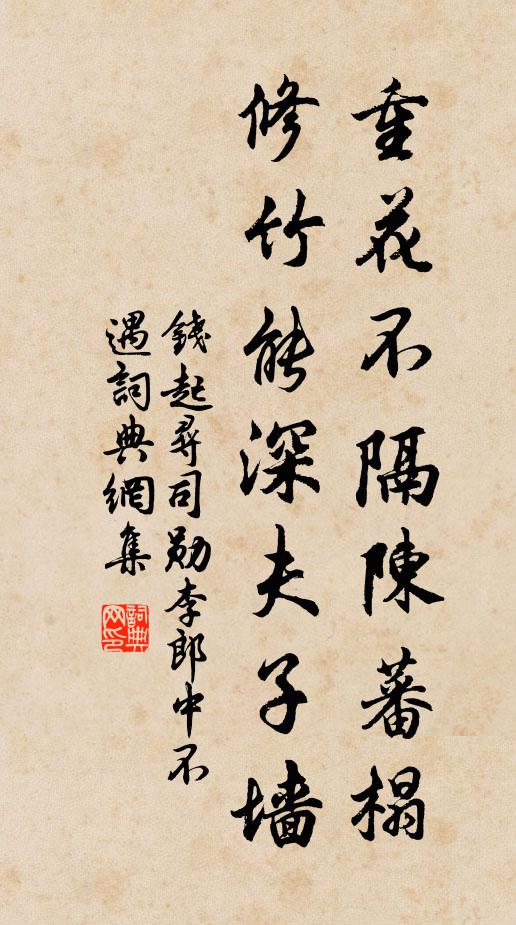 重花不隔陳蕃榻
修竹能深夫子墙
錢起尋司勋李郎中不
遇詞典網集
詞典网印